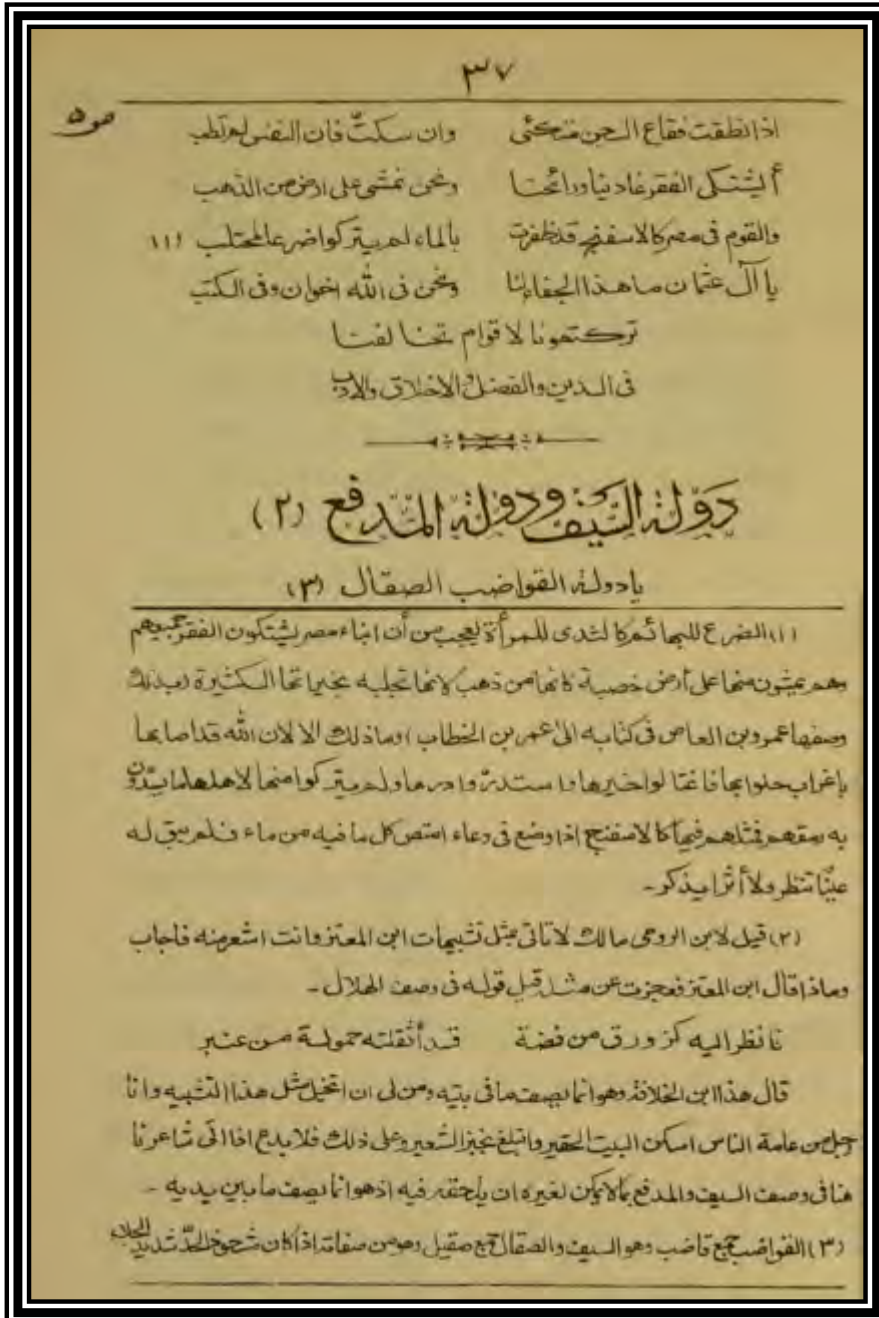 ٣٧
ص ٥
اذا نطقت فقاع السجن متكئى وان سكتّ فان النفس لم تطب
أيشتكى الفقر غادينا ورائحنا ونحن نمشى على ارض من الذهب
والقوم فى مصر كالاسفنج قد ظفرت بالماء لم يتركوا ضرعا لمحتلب (١)
يا آل عثمان ما هذا الجفاء لنا ونحن فى الله اخوان وفى الكتب
تركتمونا لاقوام تخالفنا
فى الدين والفضل والاخلاق والادب
دولة السيف ودولة المدفع (٢)
يا دولة القواضب الصقال (٣)
(١) الضرع للبهائم كالثدى للمرأة يعجب من أن ابناء مصر يشتكون الفقر جميعهم
وهم يمشون منها على أرض خصبة كانها من ذهب لانها تجلبه بخيراتها الكثيرة (وبذلك
وصفها عمرو بن العاص فى كتابه الى عمر بن الخطاب) وما ذلك الا لان الله قد اصابها
بإغراب حلوا بها فاغتالوا خيرها واستدرّوا درها ولم يتركوا منها لاهلها ما يسدّون
به رمقهم فمثلهم فيها كالاسفنج اذا وضع فى وعاء امتص كل ما فيه من ماء فلم يبق له
عينًا تنظر ولا أثرا يذكر -
(٢) قيل لابن الرومى مالك لا تاتى بمثل تشبيهات ابن المعتز وانت اشعر منه فاجاب
وماذا قال ابن المعتز فعجزت عن مثله قيل قوله فى وصف الهلال -
فانظر اليه كزورق من فضة قد أثقلته حمولة من عنبر
قال هذا ابن الخلافة وهو انما يصف ما فى بيته ومن لى ان اتخيل مثل هذا التشبيه وانا
رجل من عامة الناس اسكن البيت الحقير واتبلغ بخبز الشعير وعلى ذلك فلا بدع اذا اتى شاعرنا
هنا فى وصف السيف والمدفع بما لا يمكن لغيره ان يلحقه فيه اذ هو انما يصف ما بين يديه -
(٣) القواضب جمع قاضب وهو السيف والصقال جمع صقيل وهو من صفاته اذا كان مشحوذ الحدّ شديد الجلاء